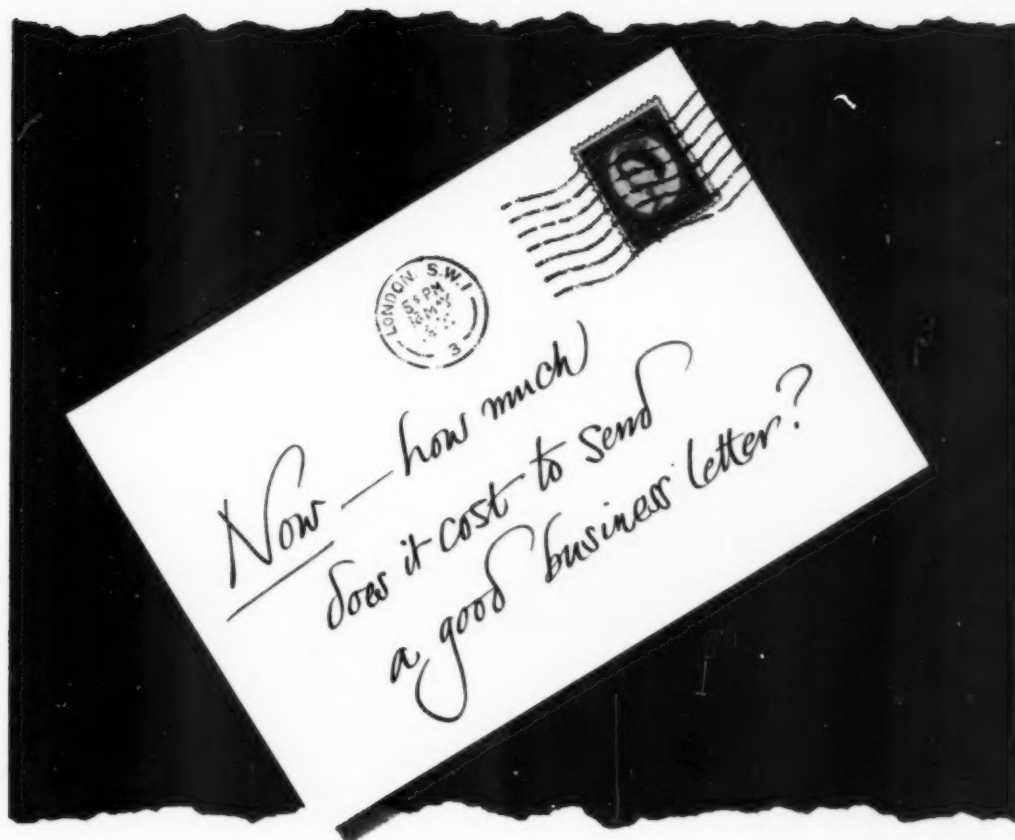 LONDON. S.W.1
3
Now — how much
does it cost to send
a good business letter?